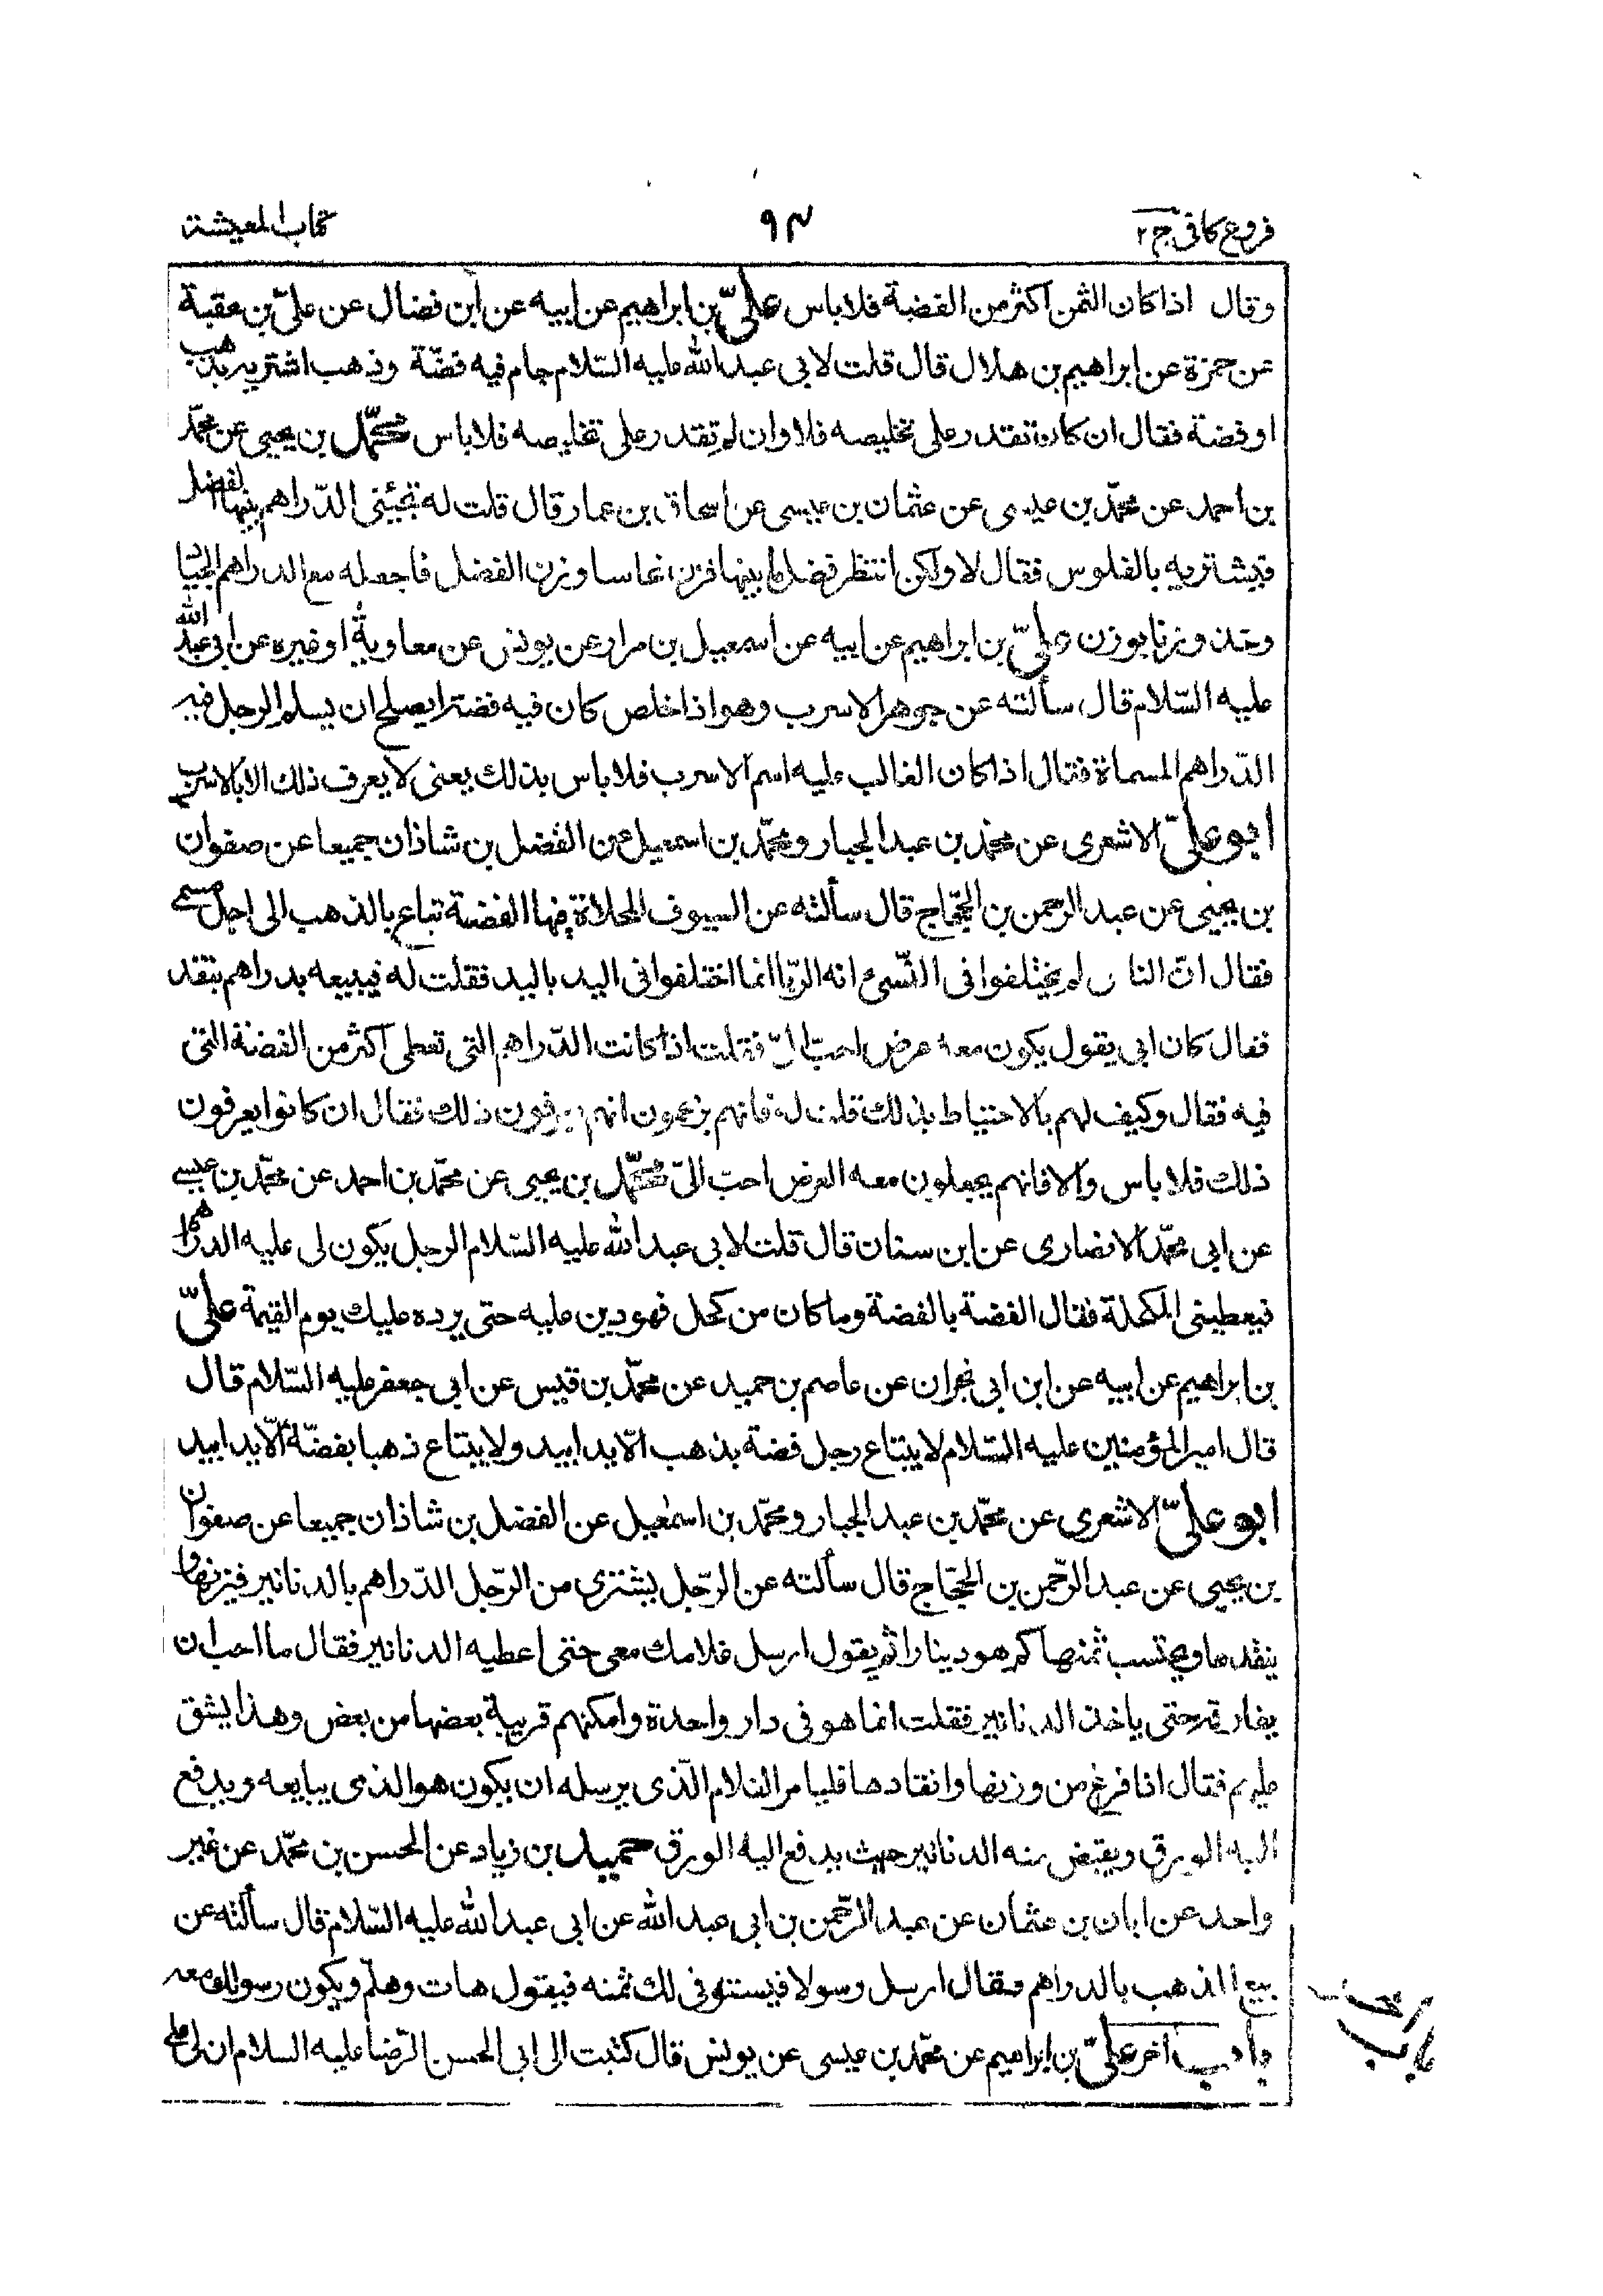 فروع كافى ج ٢
٩٤
كتاب المعيشة
وقال اذا كان الثمن اكثر من الفضة فلا باس علىّ بن ابراهيم عن ابيه عن ابن فضال عن علىّ بن عقبة
عن حمزة عن ابراهيم بن هلال قال قلت لابى عبد الله عليه السّلام جام فيه فضّة وذهب اشتريه بذهب
او فضة فقال ان كان تقدر على تخليصه فلا وان لم تقدر على تخليصه فلا باس محمّد بن يحيى عن محمّد
بن احمد عن محمّد بن عيسى عن عثمان بن عيسى عن اسحاق بن عمار قال قلت له تجيئنى الدّراهم بينها الفضل
فيشتريه بالفلوس فقال لا ولكن انتظر فضل ما بينها فزن نحاسا وزن الفضل فاجعله مع الدراهم الجياد
وخذ وزنا بوزن علىّ بن ابراهيم عن ابيه عن اسمعيل بن مرار عن يونس عن معاوية او غيره عن ابى عبد الله
عليه السّلام قال سألته عن جوهر الاسرب وهو اذا خلص كان فيه فضة ايصلح ان يسلم الرجل فيه
الدّراهم المسماة فقال اذا كان الغالب عليه اسم الاسرب فلا باس بذلك يعنى لا يعرف ذلك الا بالاسرب
ابو علىّ الاشعرى عن محمّد بن عبد الجبار ومحمّد بن اسمعيل عن الفضل بن شاذان جميعا عن صفوان
بن يحيى عن عبد الرحمن بن الحجّاج قال سألته عن السيوف المحلاة فيها الفضة تباع بالذهب الى اجل مسمى
فقال انّ الناس لم يختلفوا فى النّسىء انه الرّبا انما اختلفوا فى اليد باليد فقلت له فيبيعه بدراهم بنقد
فقال كان ابى يقول يكون معه عرض احبّ الىّ فقلت اذا كانت الدّراهم التى تعطى اكثر من الفضة التى
فيه فقال وكيف لهم بالاحتياط بذلك قلت له فانهم يزعمون انهم يعرفون ذلك فقال ان كانوا يعرفون
ذلك فلا باس والا فانهم يجعلون معه العرض احبّ الىّ محمّد بن يحيى عن محمّد بن احمد عن محمّد بن عيسى
عن ابى محمّد الانصارى عن ابن سنان قال قلت لابى عبد الله عليه السّلام الرجل يكون لى عليه الدراهم
فيعطينى المكحلة فقال الفضة بالفضة وما كان من كحل فهو دين عليه حتى يرده عليك يوم القيمة علىّ
بن ابراهيم عن ابيه عن ابن ابى نجران عن عاصم بن حميد عن محمّد بن قيس عن ابى جعفر عليه السّلام قال
قال امير المؤمنين عليه السّلام لا يبتاع رجل فضة بذهب الّا يدا بيد ولا يبتاع ذهبا بفضّة الّا يدا بيد
ابو علىّ الاشعرى عن محمّد بن عبد الجبار ومحمّد بن اسمعيل عن الفضل بن شاذان جميعا عن صفوان
بن يحيى عن عبد الرّحمن بن الحجّاج قال سألته عن الرّجل يشترى من الرّجل الدّراهم بالدنانير فيزنها و
ينقدها ويحتسب ثمنها كم هو دينارا ثم يقول ارسل غلامك معى حتى اعطيه الدنانير فقال ما احب ان
يفارقه حتى ياخذ الدنانير فقلت انما هو فى دار واحدة وامكنهم قريبة بعضها من بعض وهذا يشق
عليهم فقال اذا فرغ من وزنها وانقادها فليامر الغلام الّذى يرسله ان يكون هو الذى يبايعه ويدفع
اليه الورق ويقبض منه الدنانير حيث يدفع اليه الورق حميد بن زياد عن الحسن بن محمّد عن غير
واحد عن ابان بن عثمان عن عبد الرّحمن بن ابى عبد الله عن ابى عبد الله عليه السّلام قال سألته عن
بيع الذهب بالدراهم فيقال ارسل رسولا فيستوفى لك ثمنه فيقول هات وهلمّ ويكون رسولك معه
باب اخر علىّ بن ابراهيم عن محمّد بن عيسى عن يونس قال كتبت الى ابى الحسن الرّضا عليه السلام ان لى على